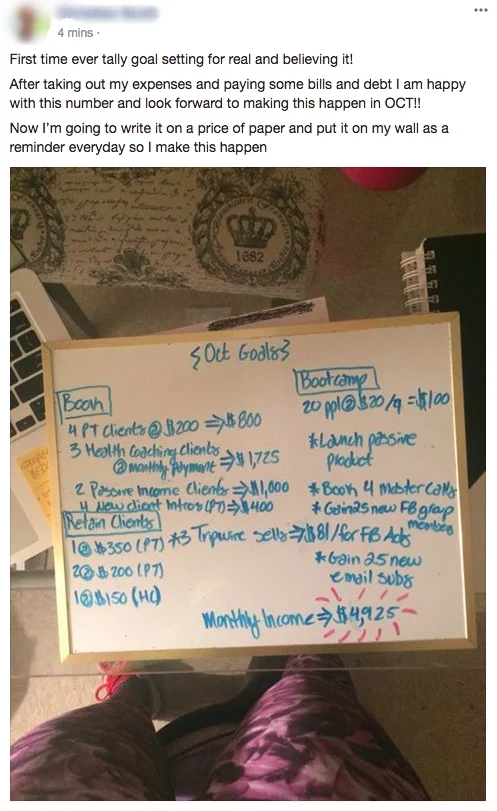 4 mins ·
First time ever tally goal setting for real and believing it!
After taking out my expenses and paying some bills and debt I am happy
with this number and look forward to making this happen in OCT!!
Now I'm going to write it on a price of paper and put it on my wall as a
reminder everyday so I make this happen
1882
{Oct Goals}
Book
4 PT Clients @ $200 ⇒ $800
3 Health Coaching Clients
@ monthly payment ⇒ $1,725
2 Passive Income Clients ⇒ $1,000
4 New client Intros (PT) ⇒ $400
Retain Clients
1@ $350 (PT)
2@ $200 (PT)
1@ $150 (HC)
*3 Tripwire sells ⇒ $81/for FB Ads
Bootcamp
20 ppl @ $20/9 = $100
*Launch passive
product
*Book 4 Master Calls
*Gain 25 new FB group
members
*Gain 25 new
email subs
Monthly Income ⇒ $4,925